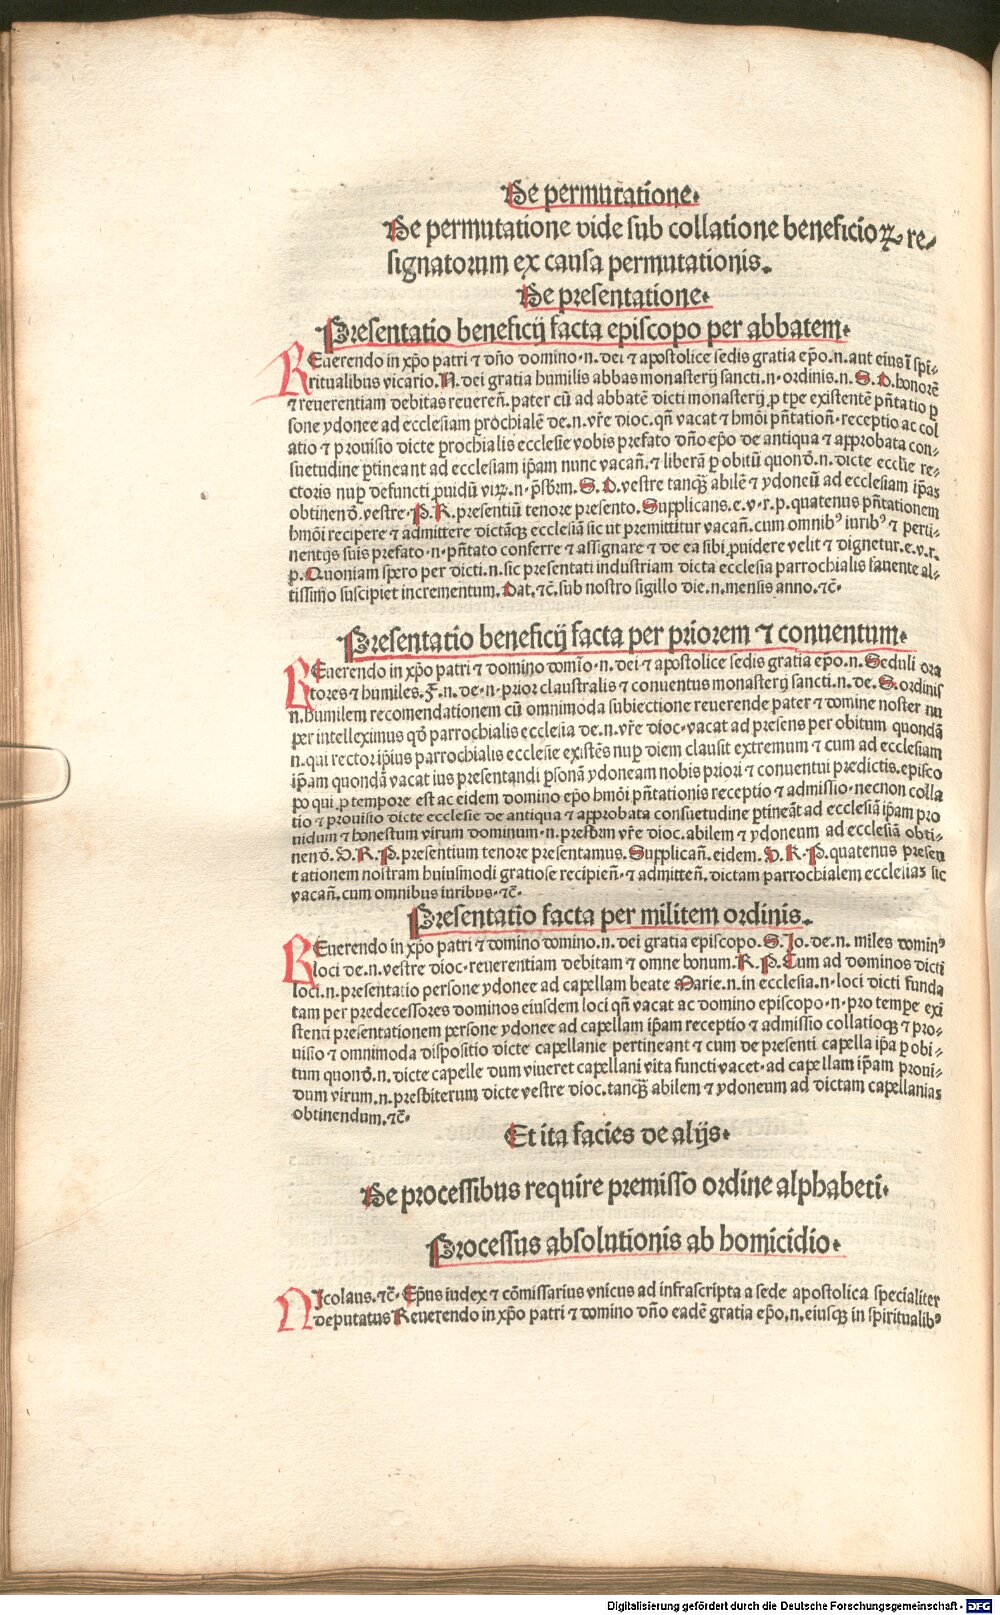 De permutatione.
De permutatione vide sub collatione beneficioꝝ re-
signatorum ex causa permutationis.
De presentatione.
Presentatio beneficij facta episcopo per abbatem.
REuerendo in xp̄o patri ⁊ dn̄o domino.n. dei ⁊ apostolice sedis gratia ep̄o.n. aut eius ī spi-
ritualibus vicario. N. dei gratia humilis abbas monasterij sancti.n. ordinis.n. S. D. honorē
⁊ reuerentiam debitas reueren̄. pater cū ad abbatē dicti monasterij ꝓ tp̄e existentē pn̄tatio ꝑ
sone ydonee ad ecclesiam ꝑrochialē de.n. vr̄e dioc. qn̄ vacat ⁊ hmōi pn̄tation̄. receptio ac col
atio ⁊ prouisio dicte ꝑrochialis ecclesie vobis prefato dn̄o ep̄o de antiqua ⁊ approbata con-
suetudine ꝑtineant ad ecclesiam ip̄am nunc vacan̄. ⁊ liberā ꝑ obitū quond̄.n. dicte eccl̄ie re-
ctoris nuꝑ defuncti ꝓuidū viꝝ.n. pr̄sbrm. S. D. vestre tanqꝫ abilē ⁊ ydoneū ad ecclesiam ip̄as
obtinend̄. vestre. P. R. presentiū tenore presento. Supplicans.e.v.r.p. quatenus pn̄tationem
hmōi recipere ⁊ admittere dictāqꝫ ecclesiā sic ut premittitur vacan̄. cum omnibꝰ iuribꝰ ⁊ perti-
nentijs suis prefato.n. pn̄tato conferre ⁊ assignare ⁊ de ea sibi ꝓuidere velit ⁊ dignetur.e.v.r.
p. Quoniam sꝑero per dicti.n. sic presentati industriam dicta ecclesia parrochialis fauente al-
tissimo suscipiet incrementum. Dat. ⁊c̄. sub nostro sigillo die.n. mensis anno. ⁊c̄.
Presentatio beneficij facta per priorem ⁊ conuentum.
REuerendo in xp̄o patri ⁊ domino domīo.n. dei ⁊ apostolice sedis gratia ep̄o.n. Seduli ora
tores ⁊ humiles. F.n. de.n. prior claustralis ⁊ conuentus monasterij sancti.n. de. S. ordinis
n. humilem recomendationem cū omnimoda subiectione reuerende pater ⁊ domine noster nu
per intelleximus qd̄ parrochialis ecclesia de.n. vr̄e dioc. vacat ad presens per obitum quondā
n. qui rector ip̄ius parrochialis ecclesie existēs nuꝑ diem clausit extremum ⁊ cum ad ecclesiam
ip̄am quondā vacat ius presentandi ꝑsonā ydoneam nobis priori ⁊ conuentui predictis. episco
po qui ꝓ tempore est ac eidem domino ep̄o hmōi pn̄tationis receptio ⁊ admissio. necnon colla
tio ⁊ prouisio dicte ecclesie de antiqua ⁊ approbata consuetudine ꝑtineāt ad ecclesiā ip̄am pro
uidum ⁊ honestum virum dominum.n. presbr̄m vr̄e dioc. abilem ⁊ ydoneum ad ecclesiā obti-
nend̄. V. R. P. presentium tenore presentamus. Supplican̄. eidem. V. R. P. quatenus presen
tationem nostram huiusmodi gratiose recipien̄. ⁊ admitten̄. dictam parrochialem ecclesias sic
vacan̄. cum omnibus iuribus. ⁊c̄.
Presentatio facta per militem ordinis.
REuerendo in xp̄o patri ⁊ domino domino.n. dei gratia episcopo. S. Jo. de.n. miles dominꝰ
loci de.n. vestre dioc. reuerentiam debitam ⁊ omne bonum. R. P. Cum ad dominos dicti
loci.n. presentatio persone ydonee ad capellam beate Marie.n. in ecclesia.n. loci dicti funda
tam per predecessores dominos eiusdem loci qn̄ vacat ac domino episcopo.n. pro tempe exi
stenti presentationem persone ydonee ad capellam ip̄am receptio ⁊ admissio collatioqꝫ ⁊ pro-
uisio ⁊ omnimoda dispositio dicte capellanie pertineant ⁊ cum de presenti capella ip̄a ꝑ obi-
tum quond̄.n. dicte capelle dum viueret capellani vita functi vacet. ad capellam ip̄am proui-
dum virum.n. presbiterum dicte vestre dioc. tanqꝫ abilem ⁊ ydoneum ad dictam capellanias
obtinendum. ⁊c̄.
Et ita facies de alijs.
De processibus require premisso ordine alphabeti.
Processus absolutionis ab homicidio.
NIcolaus. ⁊c̄. Ep̄us iudex ⁊ cōmissarius vnicus ad infrascripta a sede apostolica specialiter
deputatus Reuerendo in xp̄o patri ⁊ domino dn̄o eadē gratia ep̄o.n. eiusqꝫ in spiritualibꝰ
Digitalisierung gefördert durch die Deutsche Forschungsgemeinschaft - DFG